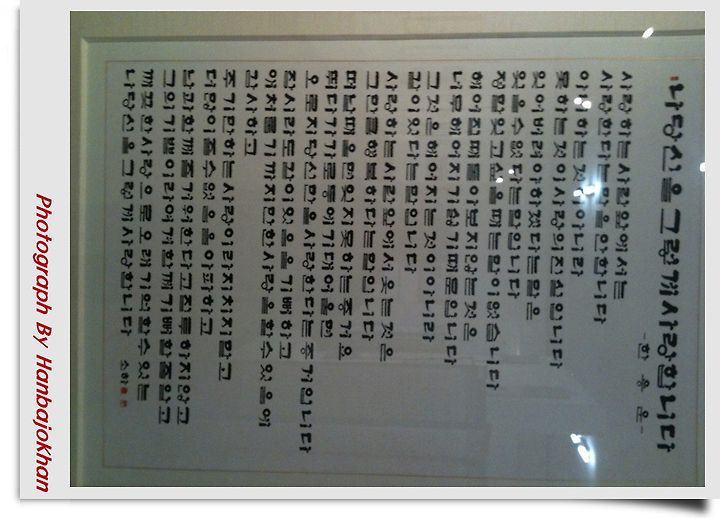 나 당신을 그렇게 사랑합니다
-한용운-
사랑하는 사람 앞에서는
사랑한다는 말을 안 합니다
아니하는 것이 아니라
못하는 것이 사랑의 진실입니다
잊어버려야 하겠다는 말은
잊을 수 없다는 말입니다
정말 잊고 싶을 때는 말이 없습니다
헤어질 때 돌아보지 않는 것은
너무 헤어지기 싫기 때문입니다
그것은 헤어지는 것이 아니라
같이 있다는 말입니다
사랑하는 사람 앞에서 웃는 것은
그만큼 행복하다는 말입니다
떠날 때 울면 잊지 못하는 증거요
뛰다가 가로등에 기대어 울면
오로지 당신만을 사랑한다는 증거입니다
잠시라도 같이 있음을 기뻐하고
애처롭기까지만 한 사랑을 할 수 있음에
감사하고
주기만 하는 사랑이라 지치지 말고
더 많이 줄 수 없음을 아파하고
남과 함께 즐거워한다고 질투하지 않고
그의 기쁨이라 여겨 함께 기뻐할 줄 알고
깨끗한 사랑으로 오래 기억할 수 있는
나 당신을 그렇게 사랑합니다 소하
Photograph By Hanbajokhan